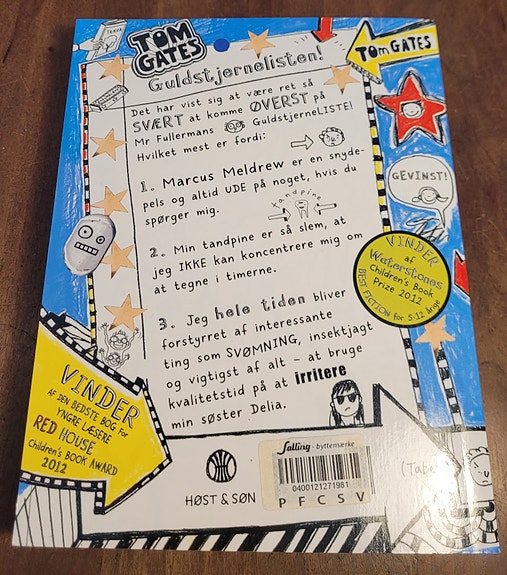 TOM
GATES
Guldstjernelisten!
TOM GATES
Det har vist sig at være ret så
SVÆRT at komme ØVERST på
Mr Fullermans GuldstjerneLISTE!
Hvilket mest er fordi:
GEVINST!
1. Marcus Meldrew er en snyde-
pels og altid UDE på noget, hvis du
spørger mig.
Tandpine
2. Min tandpine er så slem, at
jeg IKKE kan koncentrere mig om
at tegne i timerne.
VINDER
af
Waterstones
Children's Book
Prize 2012
BEST FICTION for 5-12 årige
3. Jeg hele tiden bliver
forstyrret af interessante
ting som SVØMNING, insektjagt
og vigtigst af alt – at bruge
kvalitetstid på at irritere
min søster Delia.
VINDER
AF DEN BEDSTE BOG for
YNGRE LÆSERE
RED HOUSE
Children's Book AWARD
2012
HØST & SØN
Salling - byttemærke
0400121271981
P F C S V